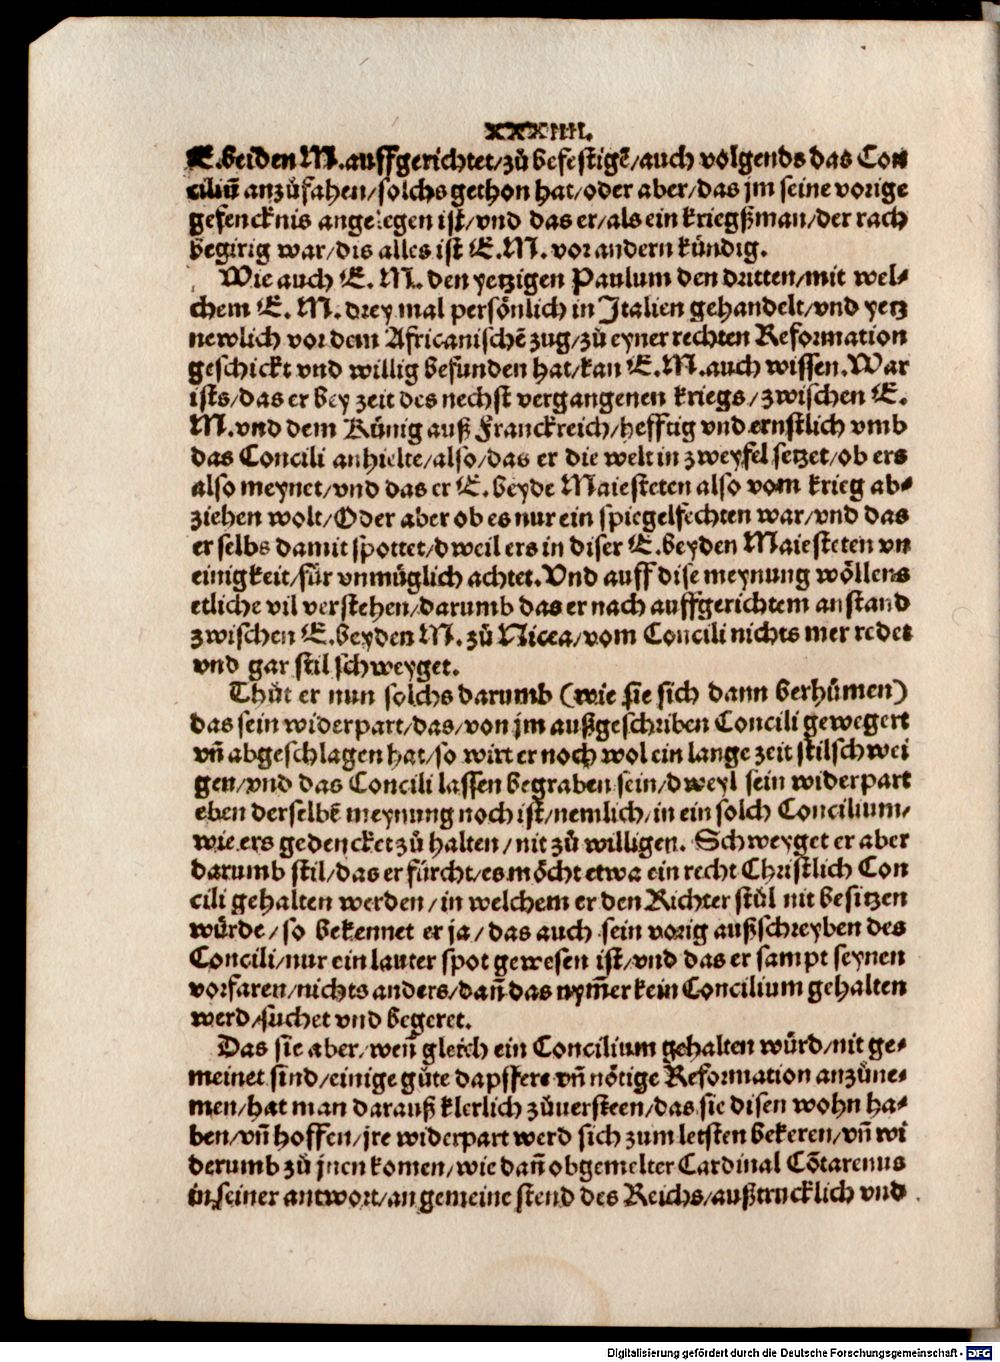 XXXIIII.
E. beiden M. auffgerichtet/zů befestigẽ/auch volgends das Con
ciliũ anzůfahen/solchs gethon hat/oder aber/das jm seine vorige
gefencknis angelegen ist/vnd das er/als ein kriegßman/der rach
begirig war/dis alles ist E. M. vor andern kündig.
Wie auch E. M. den yetzigen Paulum den dritten/mit wel⸗
chem E. M. drey mal persönlich in Italien gehandelt/vnd yetz
newlich vor dem Africanischẽ zug/zů eyner rechten Reformation
geschickt vnd willig befunden hat/kan E. M. auch wissen. War
ists/das er bey zeit des nechst vergangenen kriegs/zwischen E.
M. vnd dem Künig auß Franckreich/hefftig vnd ernstlich vmb
das Concili anhielte/also/das er die welt in zweyfel setzet/ob ers
also meynet/vnd das er E. beyde Maiesteten also vom krieg ab⸗
ziehen wolt/Oder aber ob es nur ein spiegelfechten war/vnd das
er selbs damit spottet/dweil ers in diser E. beyden Maiesteten vn
einigkeit/für vnmüglich achtet. Vnd auff dise meynung wöllens
etliche vil verstehen/darumb das er nach auffgerichtem anstand
zwischen E. beyden M. zů Nicea/vom Concili nichts mer redet
vnd gar stil schweyget.
Thůt er nun solchs darumb (wie sie sich dann berhümen)
das sein widerpart/das/von jm außgeschriben Concili gewegert
vñ abgeschlagen hat/so wirt er noch wol ein lange zeit stilschwei
gen/vnd das Concili lassen begraben sein/dweyl sein widerpart
eben derselbẽ meynung noch ist/nemlich/in ein solch Concilium/
wie ers gedencket zů halten/nit zů willigen. Schweyget er aber
darumb stil/das er fürcht/es möcht etwa ein recht Christlich Con
cili gehalten werden/in welchem er den Richter stůl nit besitzen
würde/so bekennet er ja/das auch sein vorig außschreyben des
Concili/nur ein lauter spot gewesen ist/vnd das er sampt seynen
vorfaren/nichts anders/dañ das nym̃er kein Concilium gehalten
werd/suchet vnd begeret.
Das sie aber/weñ gleich ein Concilium gehalten würd/nit ge⸗
meinet sind/einige gůte dapffere vñ nötige Reformation anzůne⸗
men/hat man darauß klerlich zůuersteen/das sie disen wohn ha⸗
ben/vñ hoffen/jre widerpart werd sich zum letsten bekeren/vñ wi
derumb zů jnen komen/wie dañ obgemelter Cardinal Cõtarenus
in seiner antwort/an gemeine stend des Reichs/außtrucklich vnd
Digitalisierung gefördert durch die Deutsche Forschungsgemeinschaft - DFG